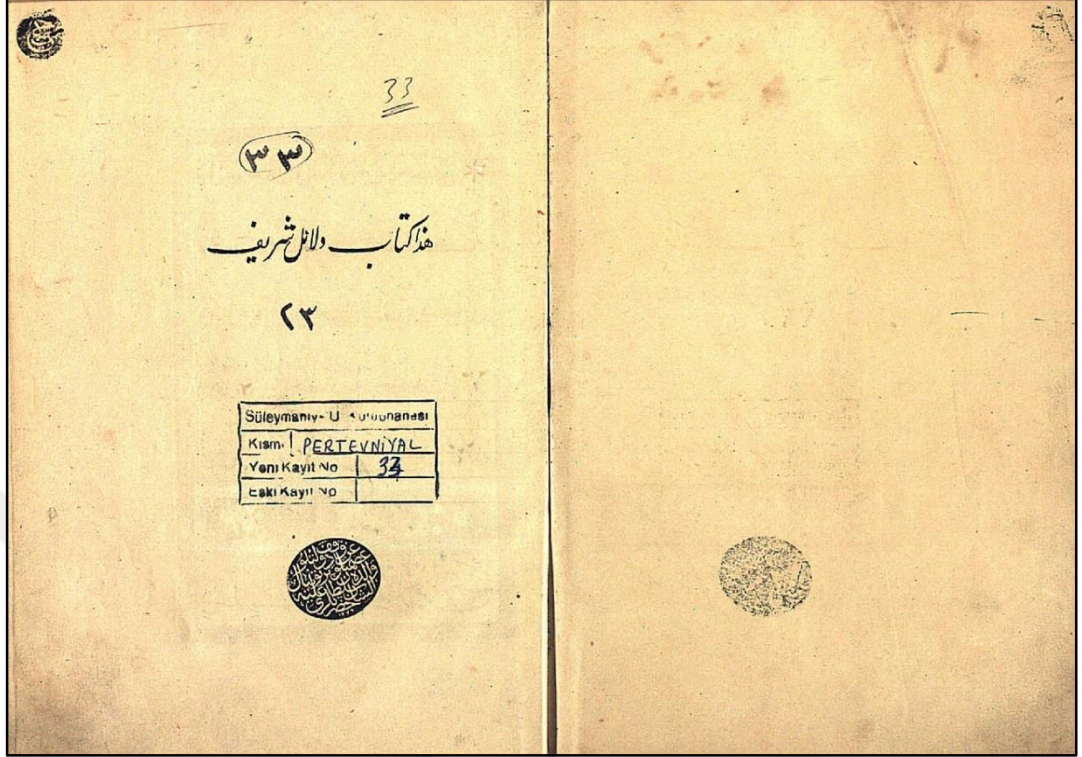 33
٣٣
هذا كتاب دلائل شريف
٢٣
Süleymaniye U Kütüphanesi
Kısmı PERTEVNİYAL
Yeni Kayıt No 33
Eski Kayıt No